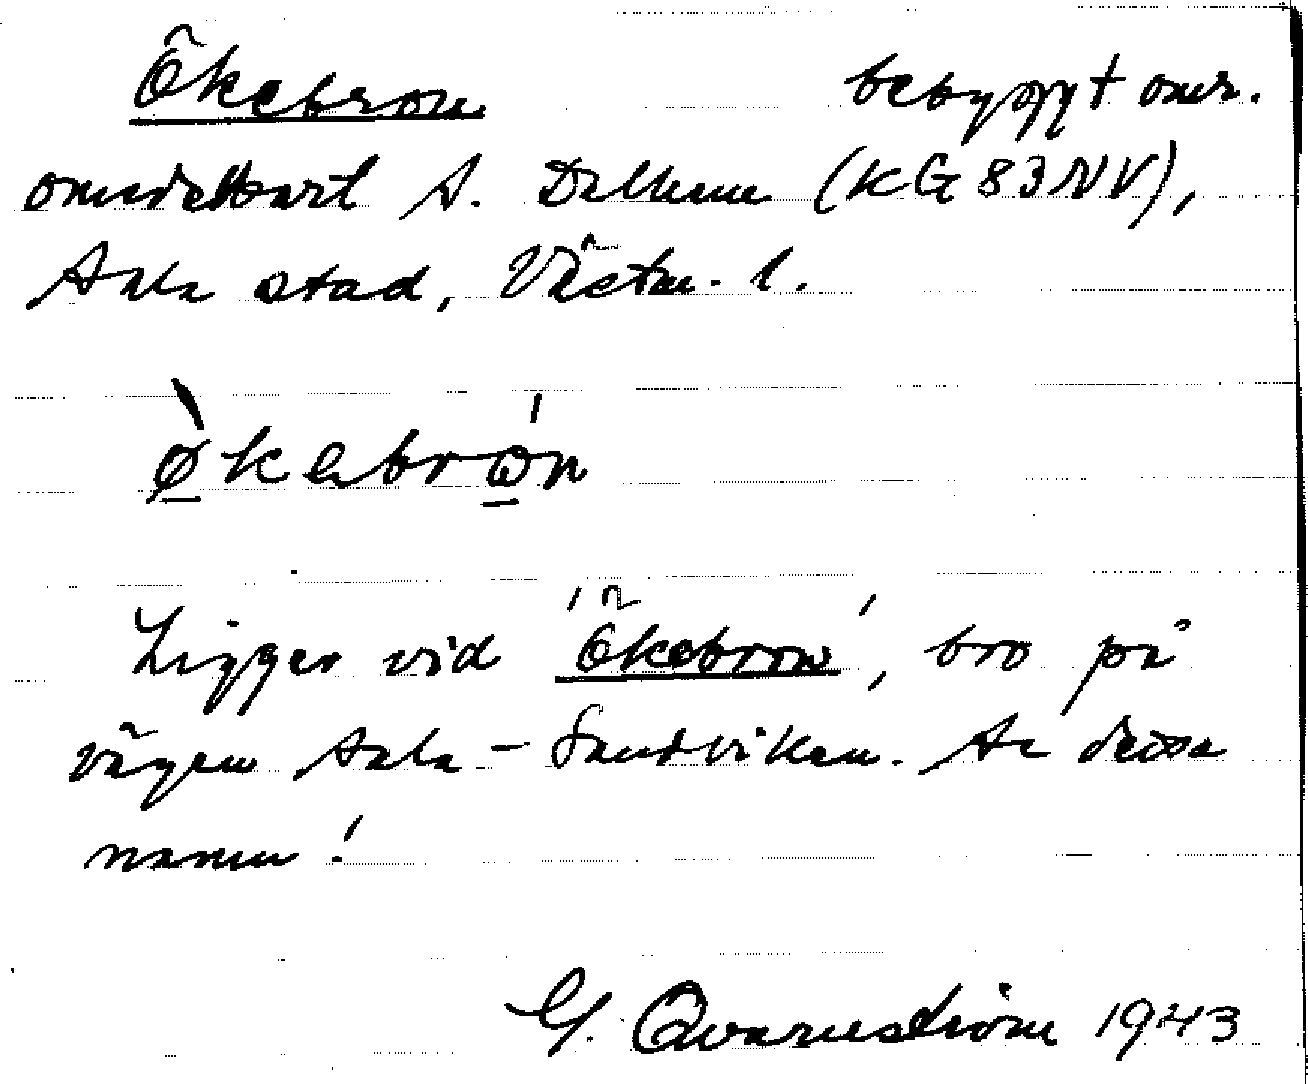 Ökebron bebyggt omr.
område kart S. Dalhem (KG 83 NV),
Sala stad, Västm. l.
ø̀kebrón
Ligger vid 'Ökebron', bro på
vägen Sala – Sandviken. Se dessa
namn!
G. Qvarnström 1943